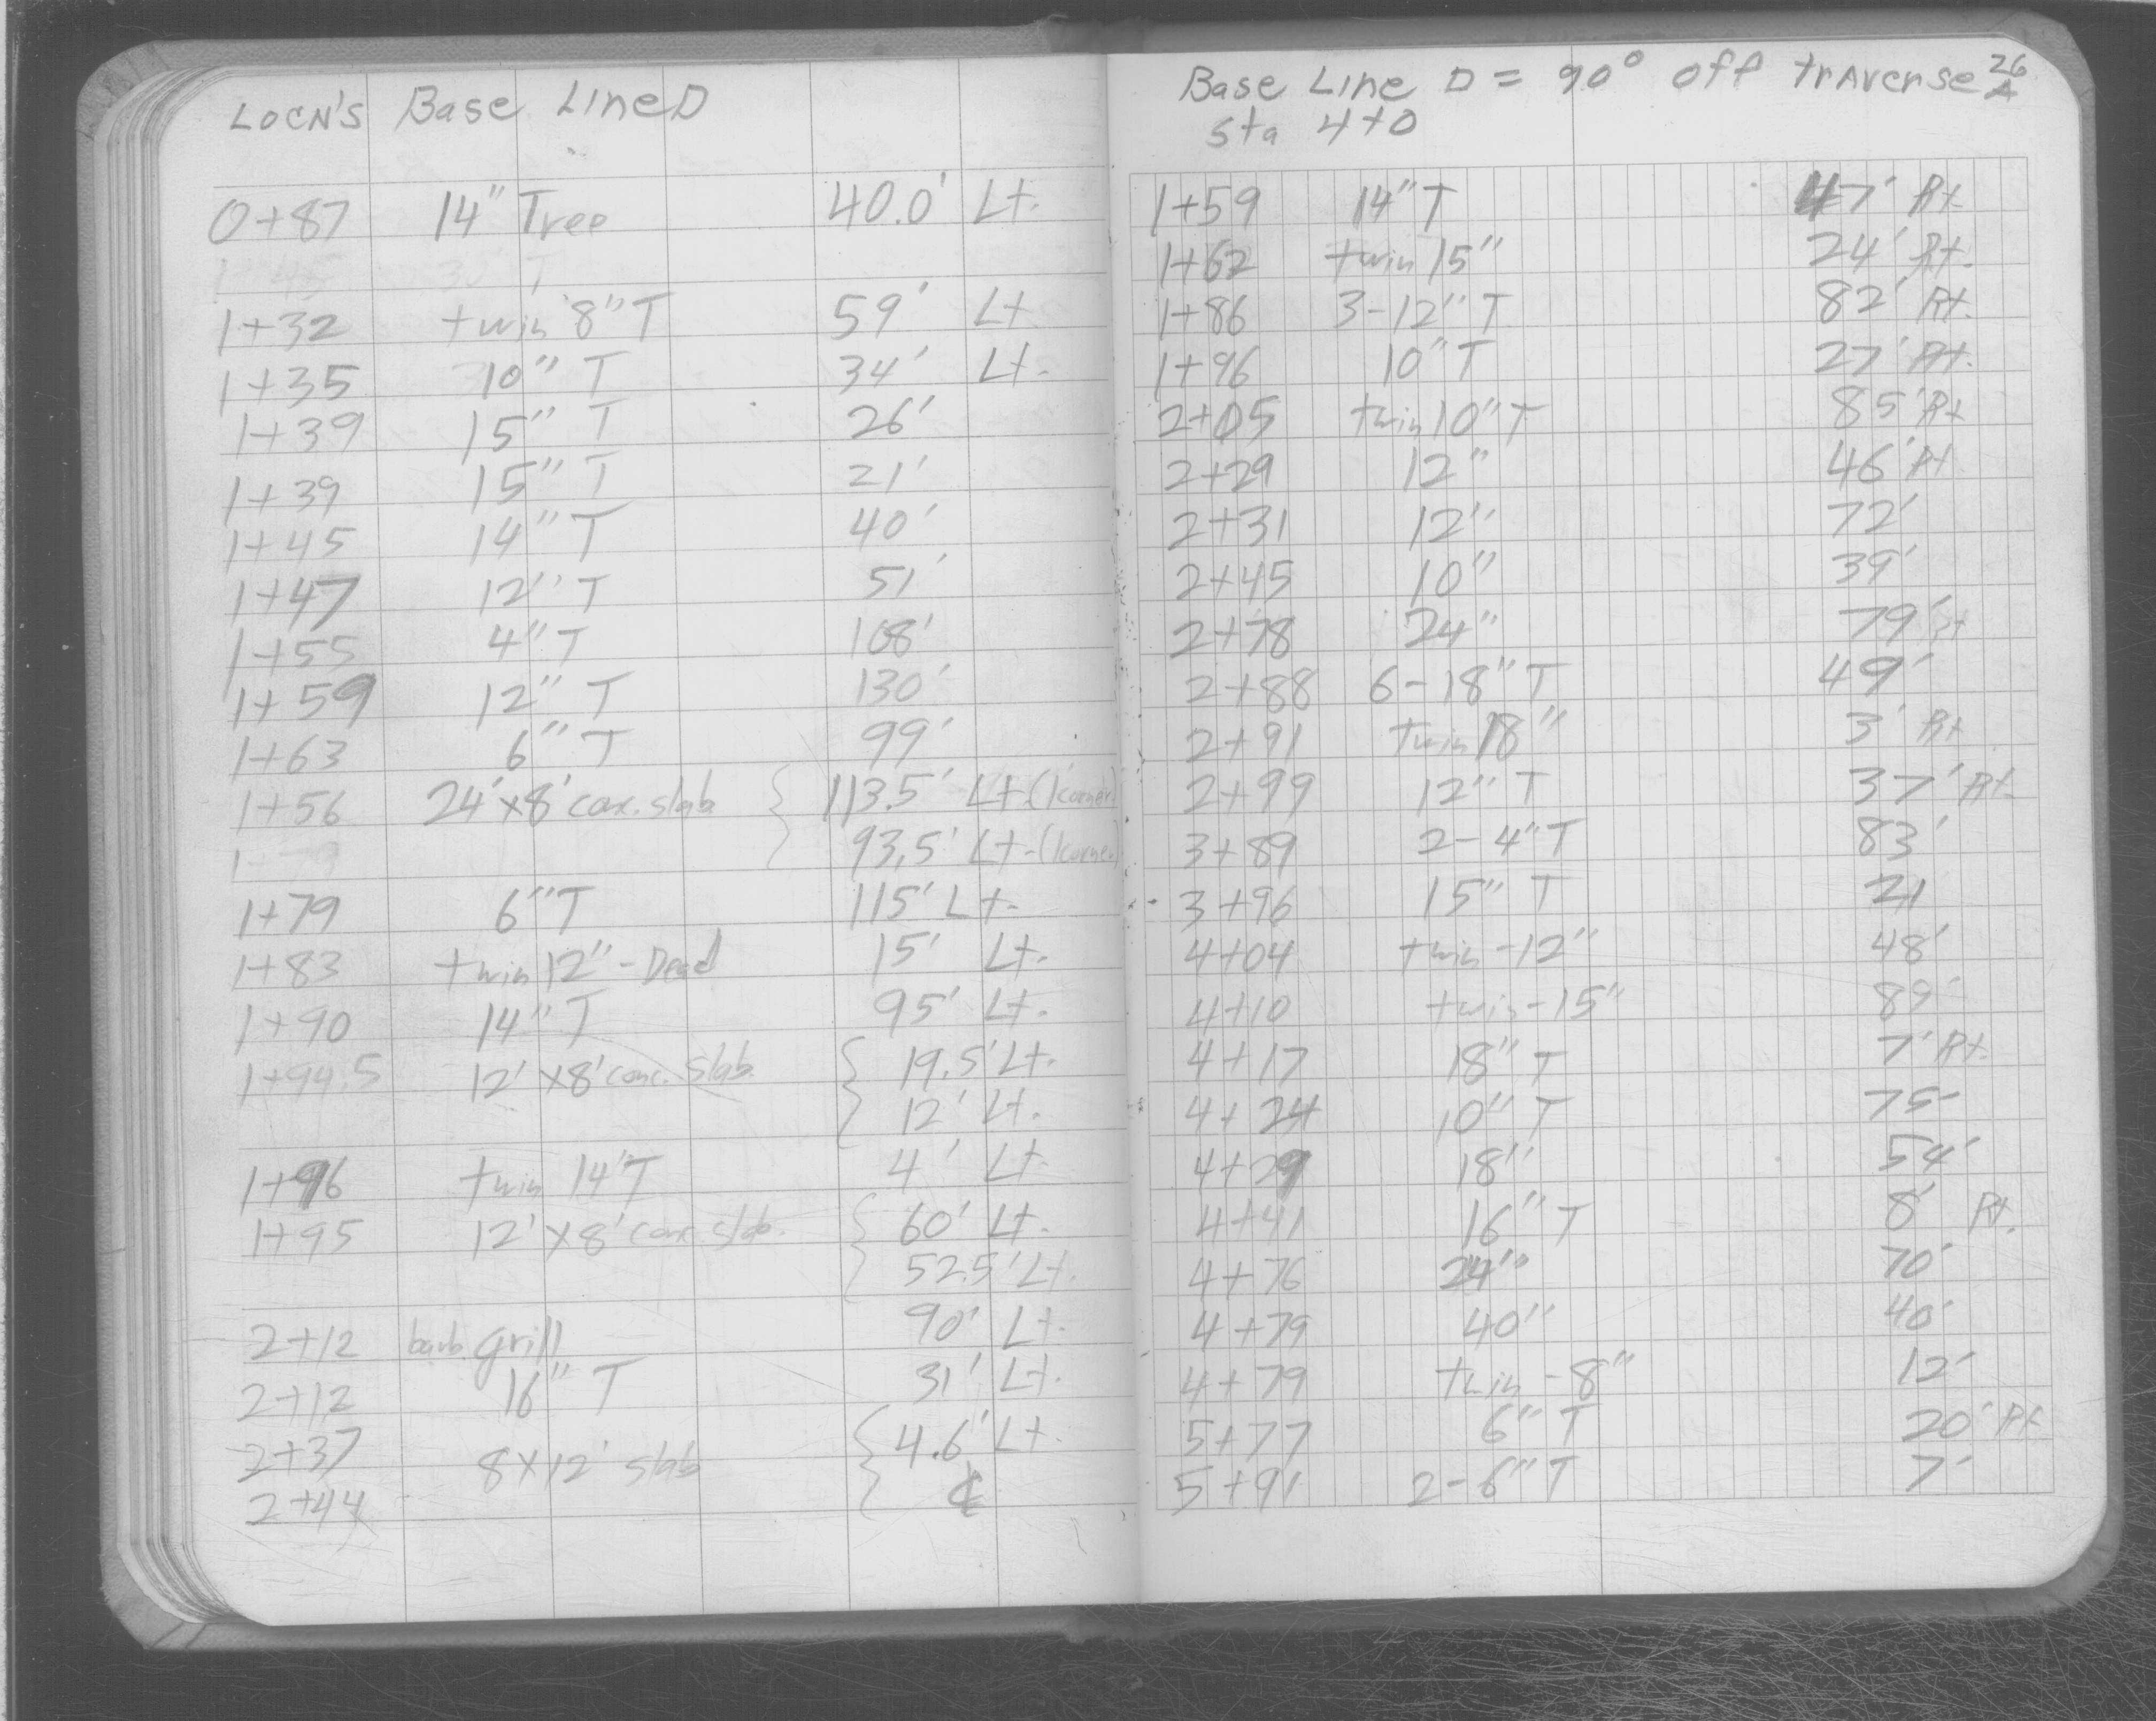 LOCN'S Base Line D
0+87 14" Tree 40.0' Lt.
1+45 30" T
1+32 twin 8" T 59' Lt
1+35 10" T 34' Lt.
1+39 15" T 26'
1+39 15" T 21'
1+45 14" T 40'
1+47 12" T 51'
1+55 4" T 108'
1+59 12" T 130'
1+63 6" T 99'
1+56 24'x8' conc. slab { 113.5' Lt. (1 corner)
1+79 93.5' Lt. (1 corner)
1+79 6" T 115' Lt.
1+83 twin 12" - Dead 15' Lt.
1+90 14" T 95' Lt.
1+94.5 12' x8' conc. slab { 19.5' Lt.
12' Lt.
1+96 twin 14" T 4' Lt.
1+95 12' x8' conc. slab. { 60' Lt.
52.5' Lt.
2+12 barb. grill 90' Lt.
2+12 16" T 31' Lt.
2+37 8x12' slab { 4.6' Lt.
2+44 ℄
Base Line D = 90° off traverse 26
Sta 4+0
1+59 14" T 47' Rt
1+62 twin 15" 24' Rt.
1+86 3-12" T 82' Rt.
1+96 10" T 27' Rt.
2+05 twin 10" T 85' Rt
2+29 12" 46' Rt
2+31 12" 72'
2+45 10" 39'
2+78 24" 79' Rt
2+88 6-18" T 49'
2+91 twin 18" 3' Rt
2+99 12" T 37' Rt.
3+89 2-4" T 83'
3+96 15" T 21
4+04 twin-12" 48'
4+10 twin-15" 89'
4+17 18" T 7' Rt.
4+24 10" T 75'
4+29 18" 54'
4+41 16" T 8' Rt.
4+76 24" 70'
4+79 40" 40'
4+79 twin-8" 12'
5+77 6" T 20' Rt
5+91 2-6" T 7'